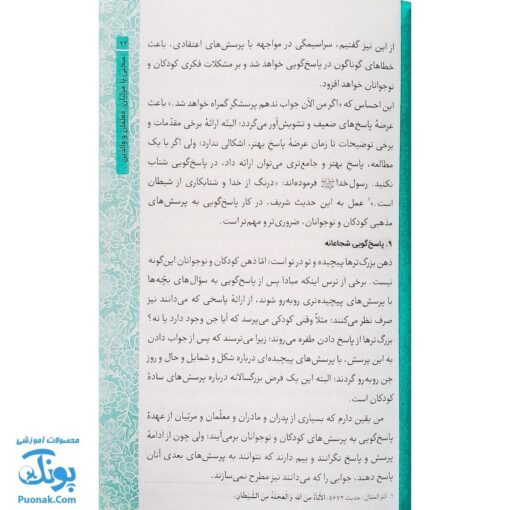 ۲۹
سخنی با مربّیان، معلّمان و والدین
از این نیز گفتیم، سراسیمگی در مواجهه با پرسش‌های اعتقادی، باعث
خطاهای گوناگون در پاسخ‌گویی خواهد شد و بر مشکلات فکری کودکان و
نوجوانان خواهد افزود.
این احساس که «اگر من الآن جواب ندهم پرسشگر گمراه خواهد شد.» باعث
عرضهٔ پاسخ‌های ضعیف و تشویش‌آور می‌گردد؛ البتّه ارائهٔ برخی مقدّمات و
برخی توضیحات تا زمان عرضهٔ پاسخ بهتر، اشکالی ندارد؛ ولی اگر با یک
مطالعه، پاسخ بهتر و جامع‌تری می‌توان ارائه داد، در پاسخ‌گویی شتاب
نکنید. رسول خدا ﷺ فرموده‌اند: «درنگ از خدا و شتابکاری از شیطان
است.»۱ عمل به این حدیث شریف، در کار پاسخ‌گویی به پرسش‌های
مذهبی کودکان و نوجوانان، ضروری‌تر و مهم‌تر است.
۹. پاسخ‌گویی شجاعانه
ذهن بزرگ‌ترها پیچیده و تو در تو است؛ امّا ذهن کودکان و نوجوانان این‌گونه
نیست. برخی از ترس اینکه مبادا پس از پاسخ‌گویی به سؤال‌های بچّه‌ها
با پرسش‌های پیچیده‌تری روبه‌رو شوند، از ارائهٔ پاسخی که می‌دانند نیز
صرف نظر می‌کنند؛ مثلاً وقتی کودکی می‌پرسد که آیا جن وجود دارد یا نه؟
بزرگ‌ترها از پاسخ دادن طفره می‌روند؛ زیرا می‌ترسند که پس از جواب دادن
به این پرسش، با پرسش‌های پیچیده‌ای درباره شکل و شمایل و حال و روز
جن روبه‌رو گردند؛ البته این یک فرض بزرگسالانه درباره پرسش‌های سادهٔ
کودکان است.
من یقین دارم که بسیاری از پدران و مادران و معلّمان و مربّیان از عهدهٔ
پاسخ‌گویی به پرسش‌های کودکان و نوجوانان برمی‌آیند؛ ولی چون از ادامهٔ
پرسش و پاسخ نگرانند و بیم دارند که نتوانند به پرسش‌های بعدی آنان
پاسخ دهند، جوابی را که می‌دانند نیز مطرح نمی‌سازند.
۱. کنز العمّال، حدیث ۵۶۷۴: الأناةُ مِنَ اللهِ وَ العَجَلَةُ مِنَ الشَّیطانِ.
محصولات آموزشی
پونک
Puonak.Com